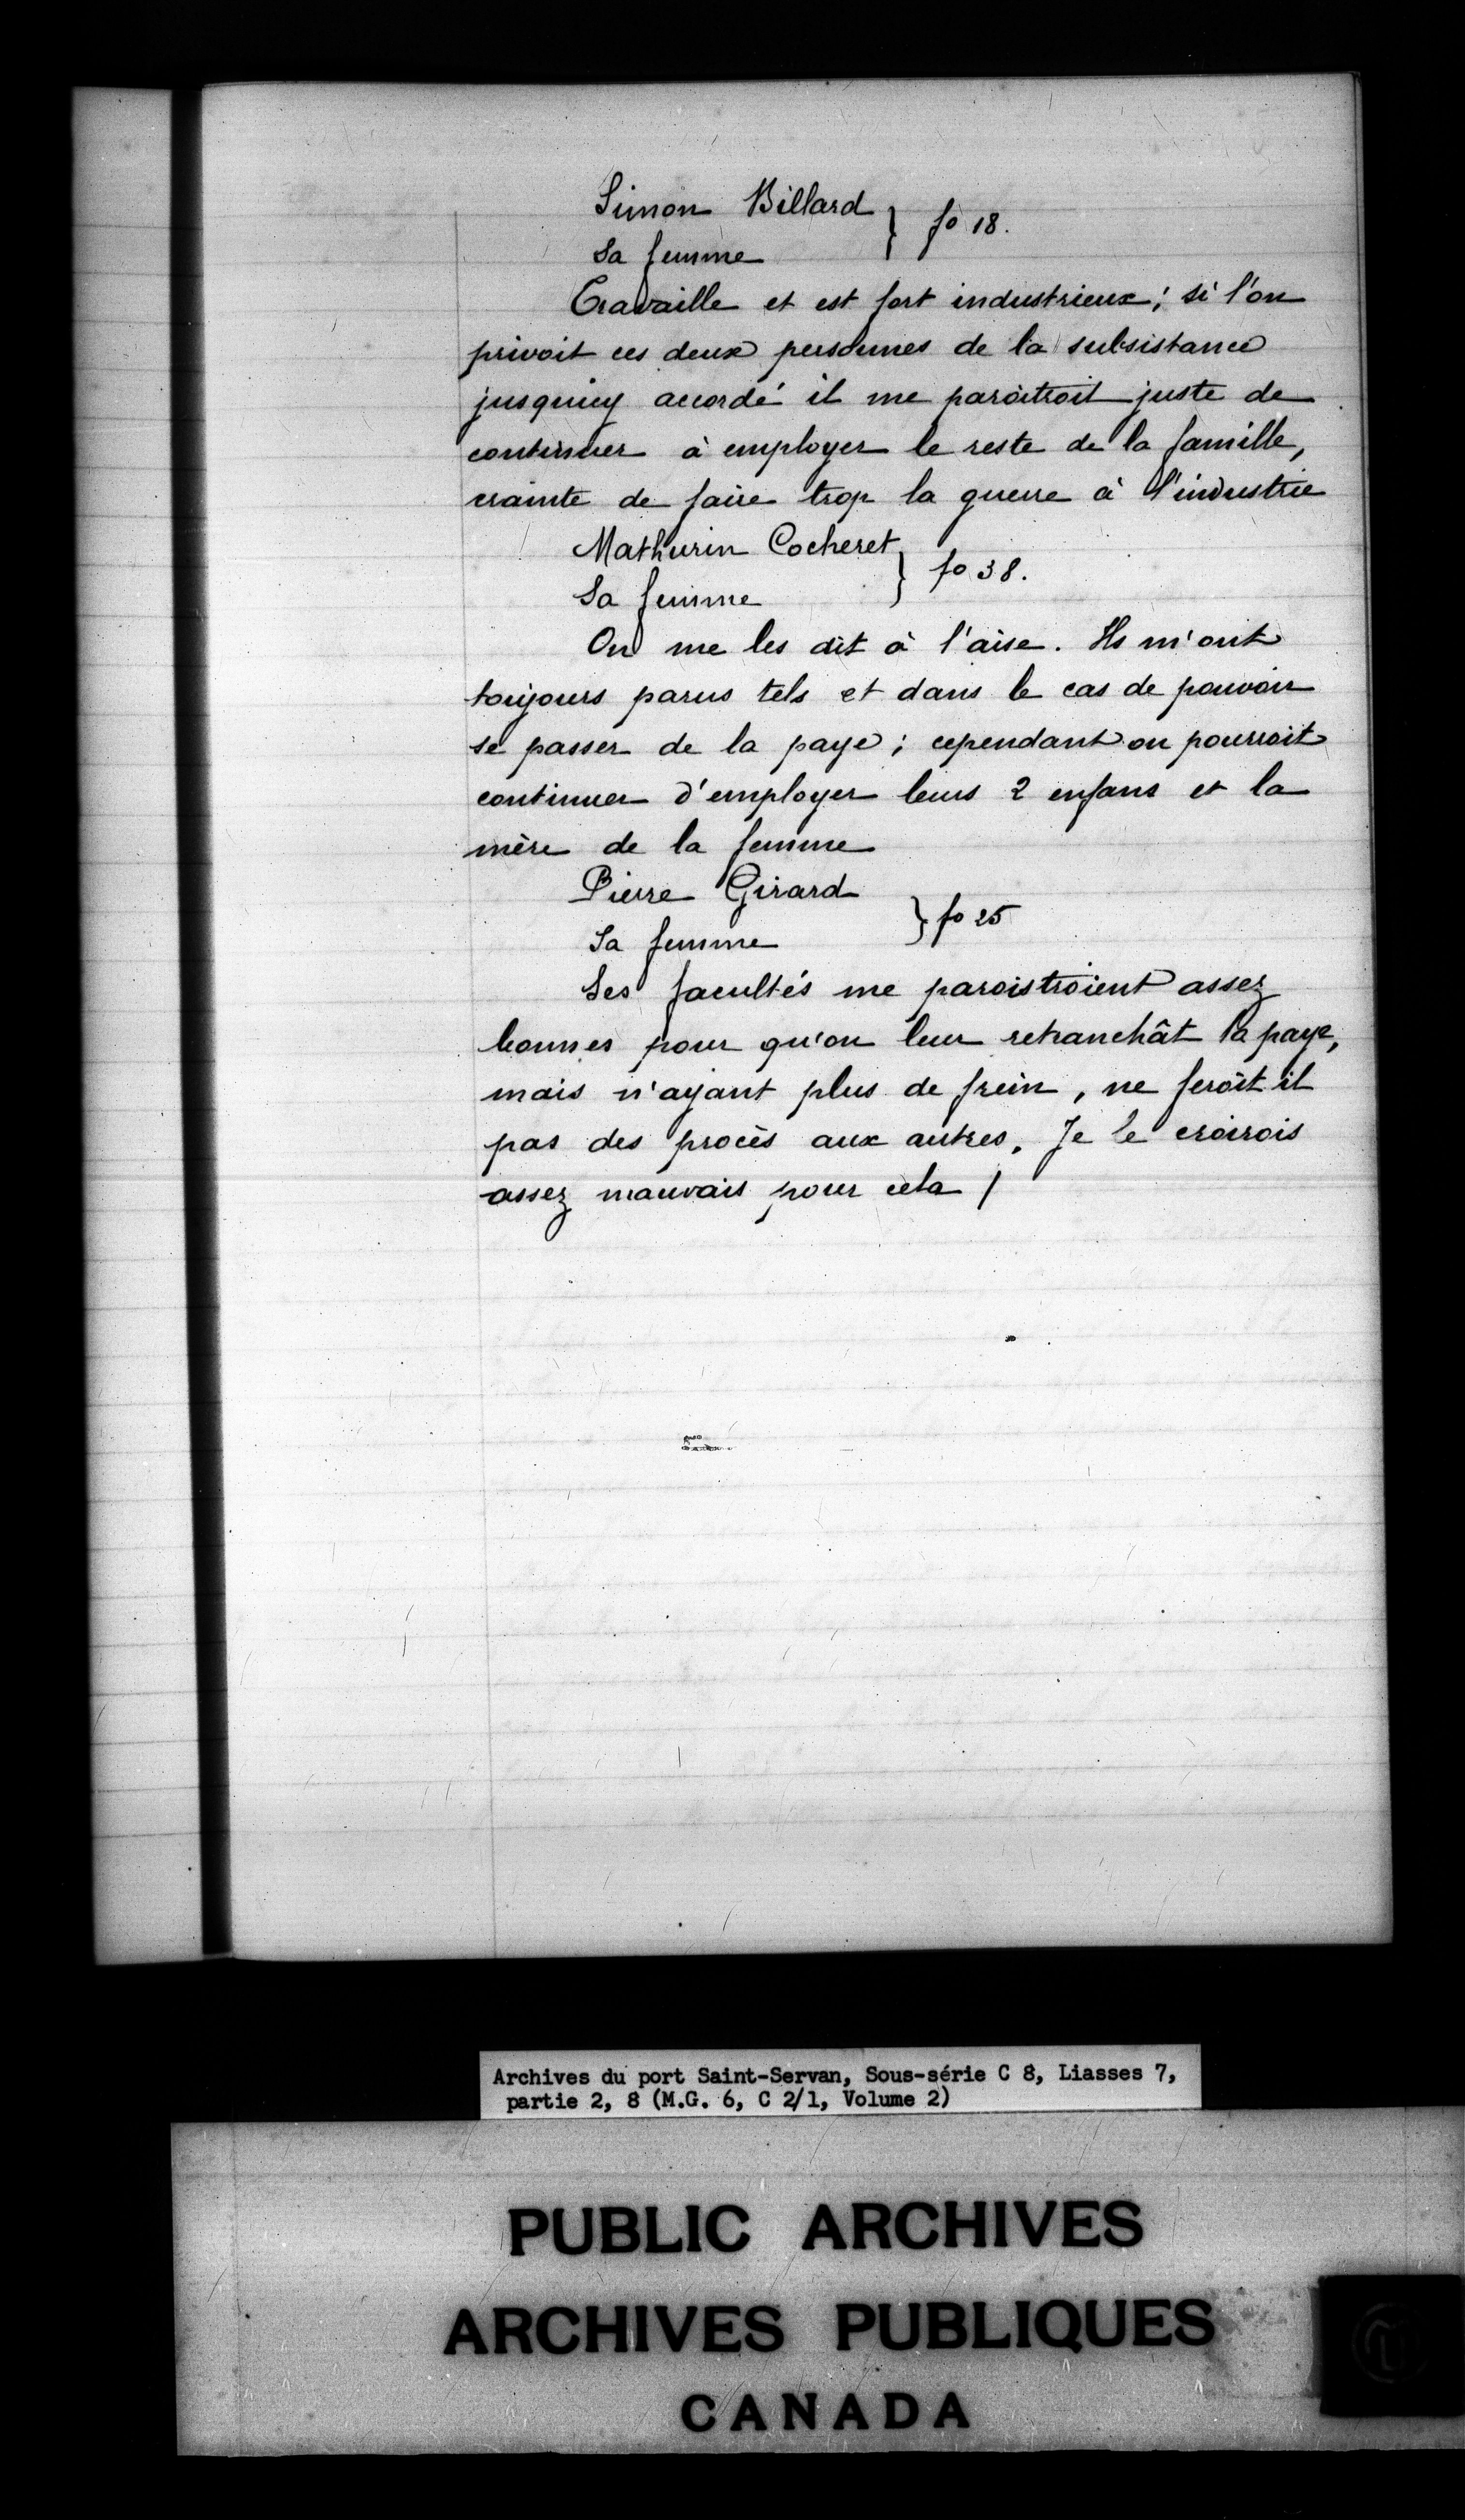 Simon Billard } fo 18.
Sa femme
Travaille et est fort industrieux; si l'on
privoit ces deux personnes de la subsistance
jusquicy accordé il me paroîtroit juste de
continuer à employer le reste de la famille,
crainte de faire trop la guerre à l'industrie
Mathurin Cocheret } fo 38.
Sa femme
On me les dit à l'aise. Ils m'ont
toujours parus tels et dans le cas de pouvoir
se passer de la paye; cependant on pourroit
continuer d'employer leurs 2 enfans et la
mère de la femme
Pierre Girard } fo 25
Sa femme
Ses facultés me paroistroient assez
bonnes pour qu'on leur retranchât la paye,
mais n'ayant plus de frein, ne feroit il
pas des procès aux autres. Je le croirois
assez mauvais pour cela /
Archives du port Saint-Servan, Sous-série C 8, Liasses 7,
partie 2, 8 (M.G. 6, C 2/1, Volume 2)
PUBLIC ARCHIVES
ARCHIVES PUBLIQUES
CANADA